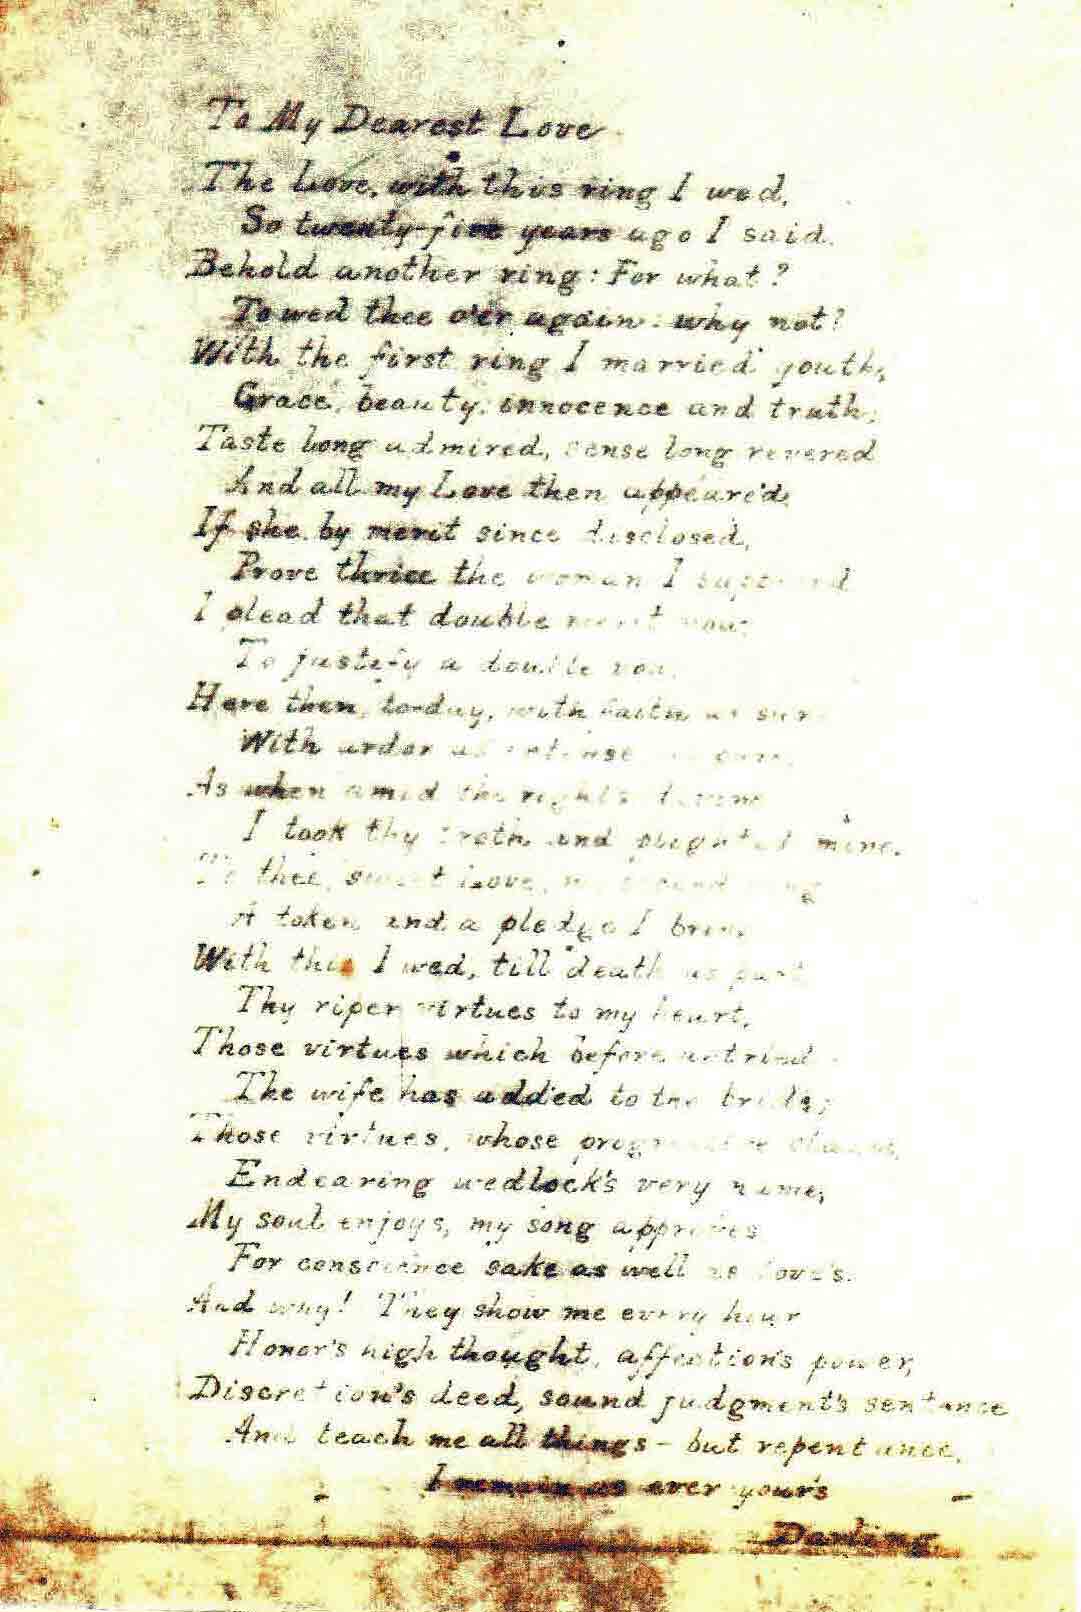 To My Dearest Love
The Love, with this ring I wed,
So twenty-five years ago I said.
Behold another ring: For what?
To wed thee o'er again: why not?
With the first ring I married youth,
Grace, beauty, innocence and truth;
Taste long admired, sense long revered
And all my Love then appeared.
If she by merit since disclosed,
Prove thrice the woman I supposed
I plead that double merit now
To justify a double vow.
Here then, to-day, with faith as sure
With ardor as intense as pure,
As when amid the rights divine
I took thy troth and plighted mine.
To thee, sweet Love, my second ring
A token and a pledge I bring
With this I wed, till death us part
Thy riper virtues to my heart,
Those virtues which before untried
The wife has added to the bride;
Those virtues, whose progressive claims,
Endearing wedlock's very name,
My soul enjoys, my song approves
For conscience sake as well as love's.
And why! They show me every hour
Honor's high thought, affection's power,
Discretion's deed, sound judgment's sentance
And teach me all things - but repentance.
I remain as ever your's
Darling